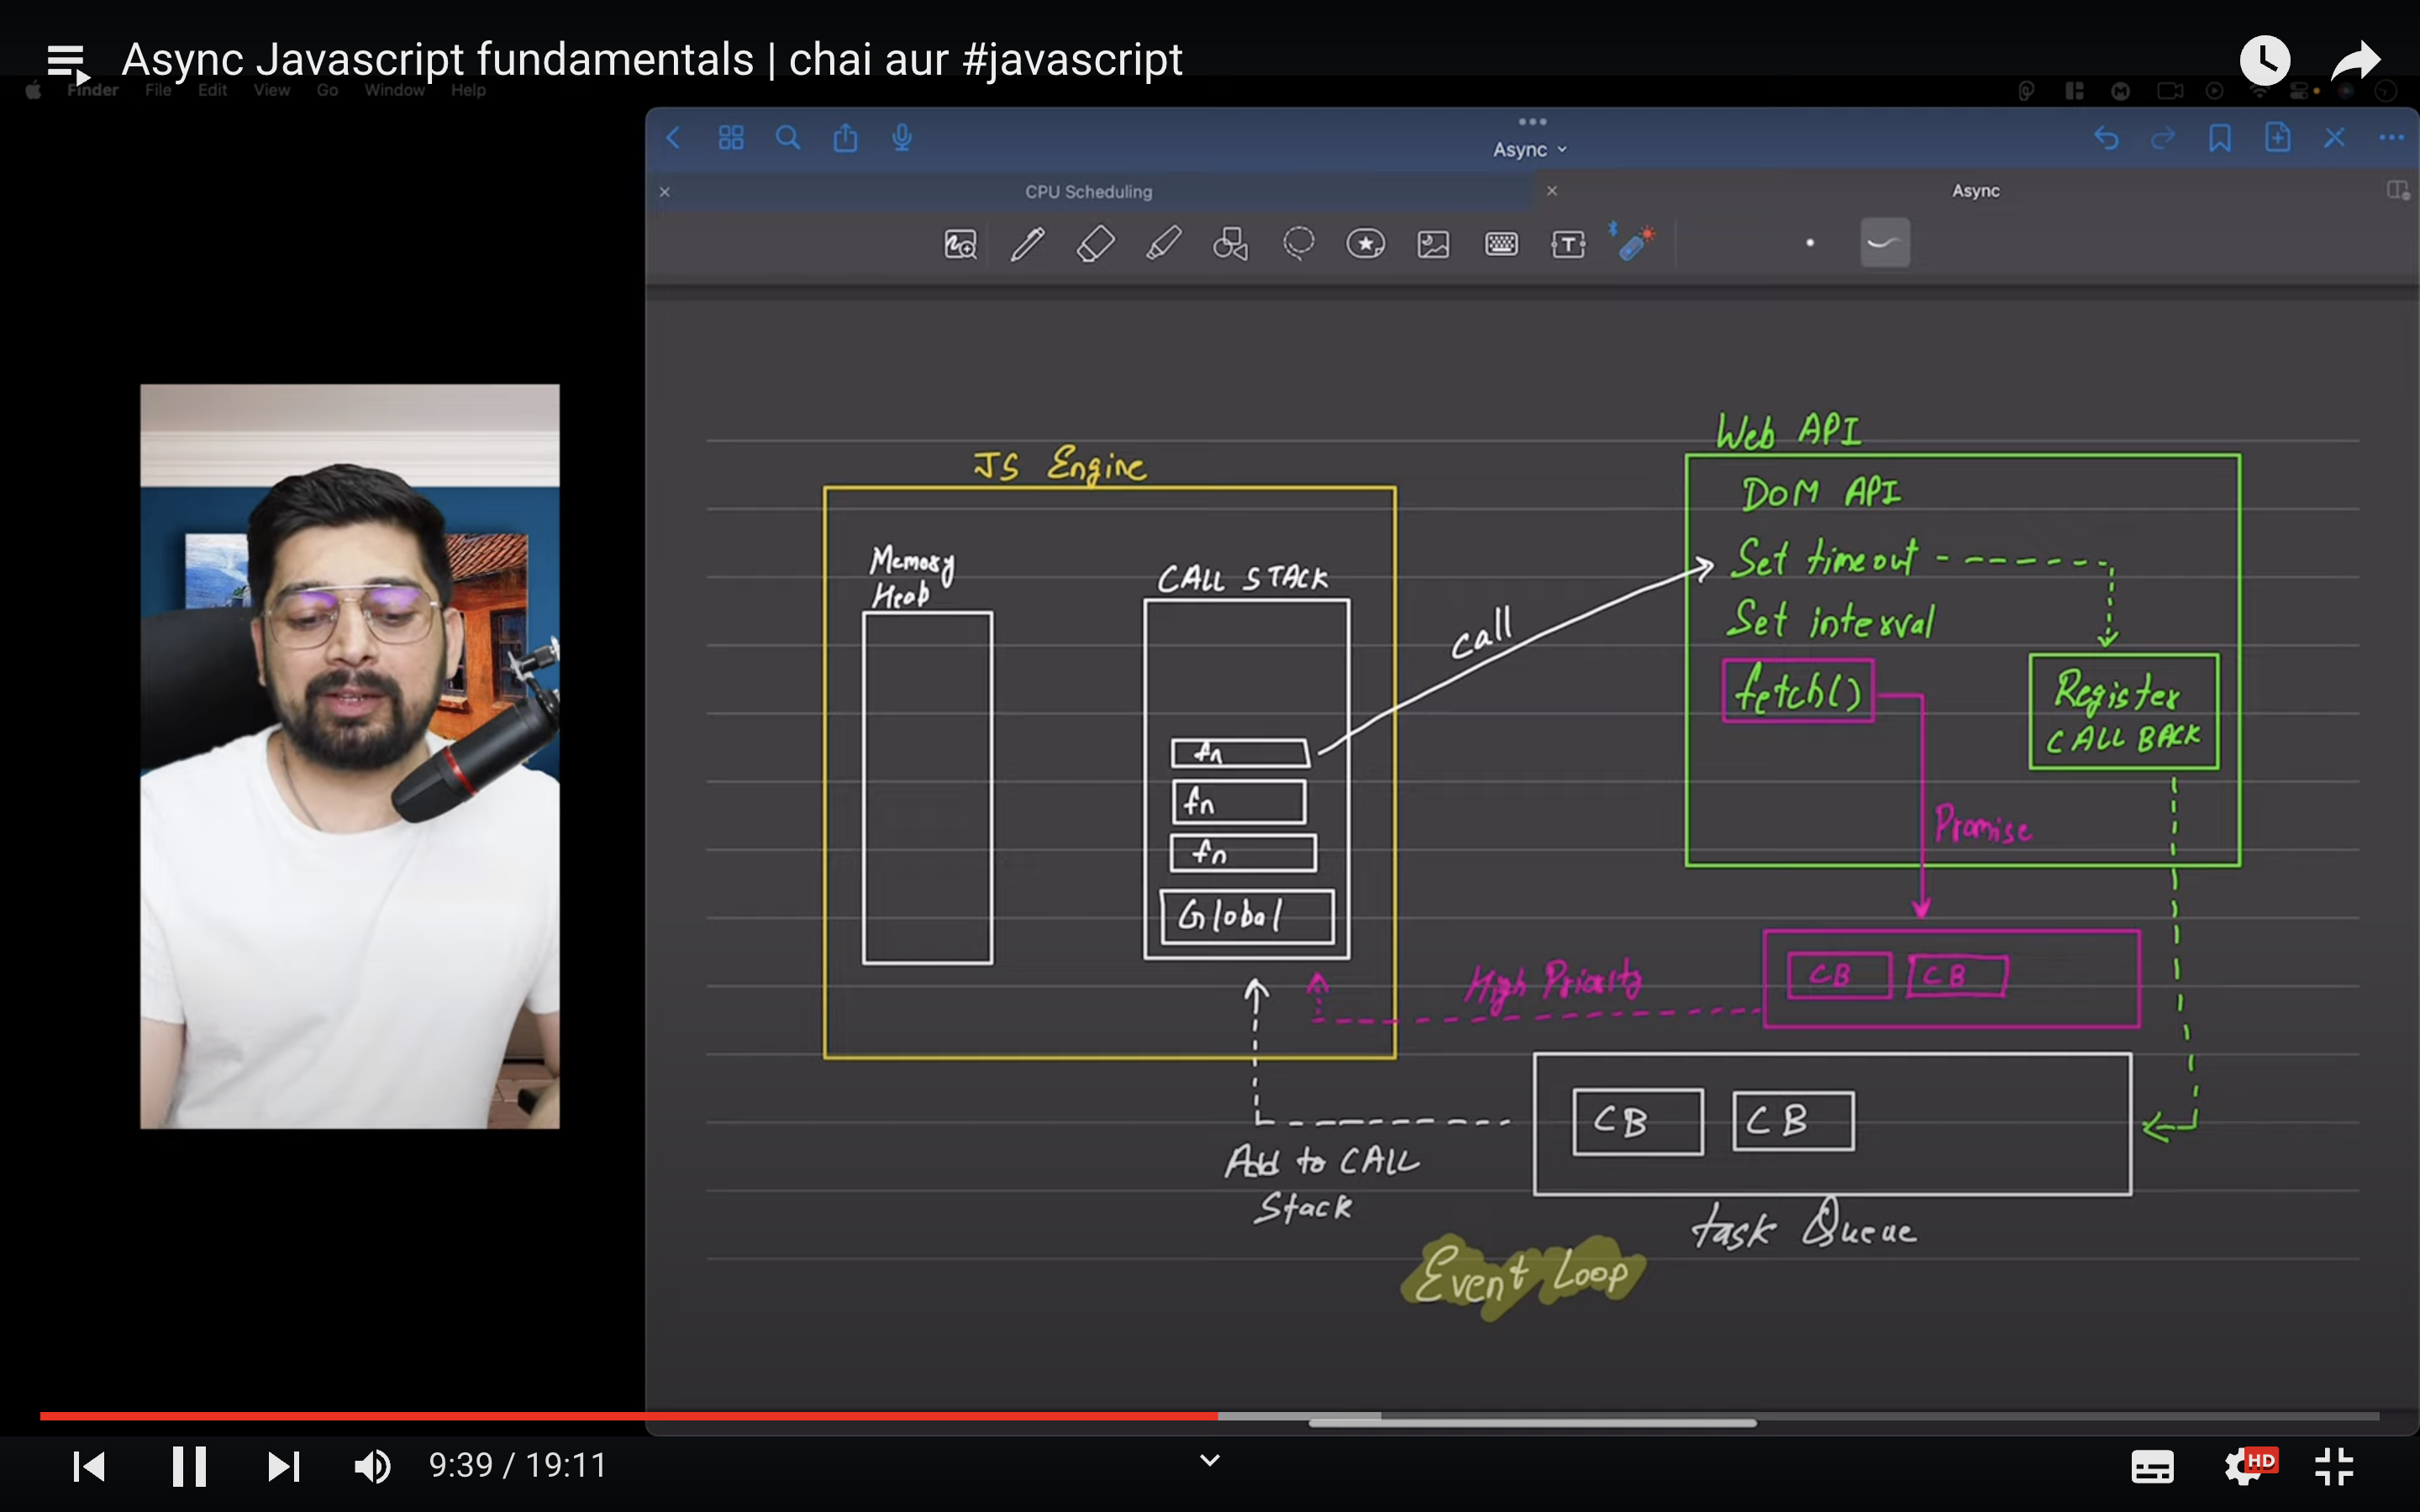 Async Javascript fundamentals | chai aur #javascript
Finder File Edit View Go Window Help
Async
CPU Scheduling
Async
T
JS Engine
Memory
Heap
CALL STACK
fn
fn
fn
Global
call
Web API
DOM API
Set timeout
Set interval
fetch()
Register
CALL BACK
Promise
High Priority
CB CB
CB CB
Add to CALL
Stack
Task Queue
Event Loop
9:39 / 19:11
HD